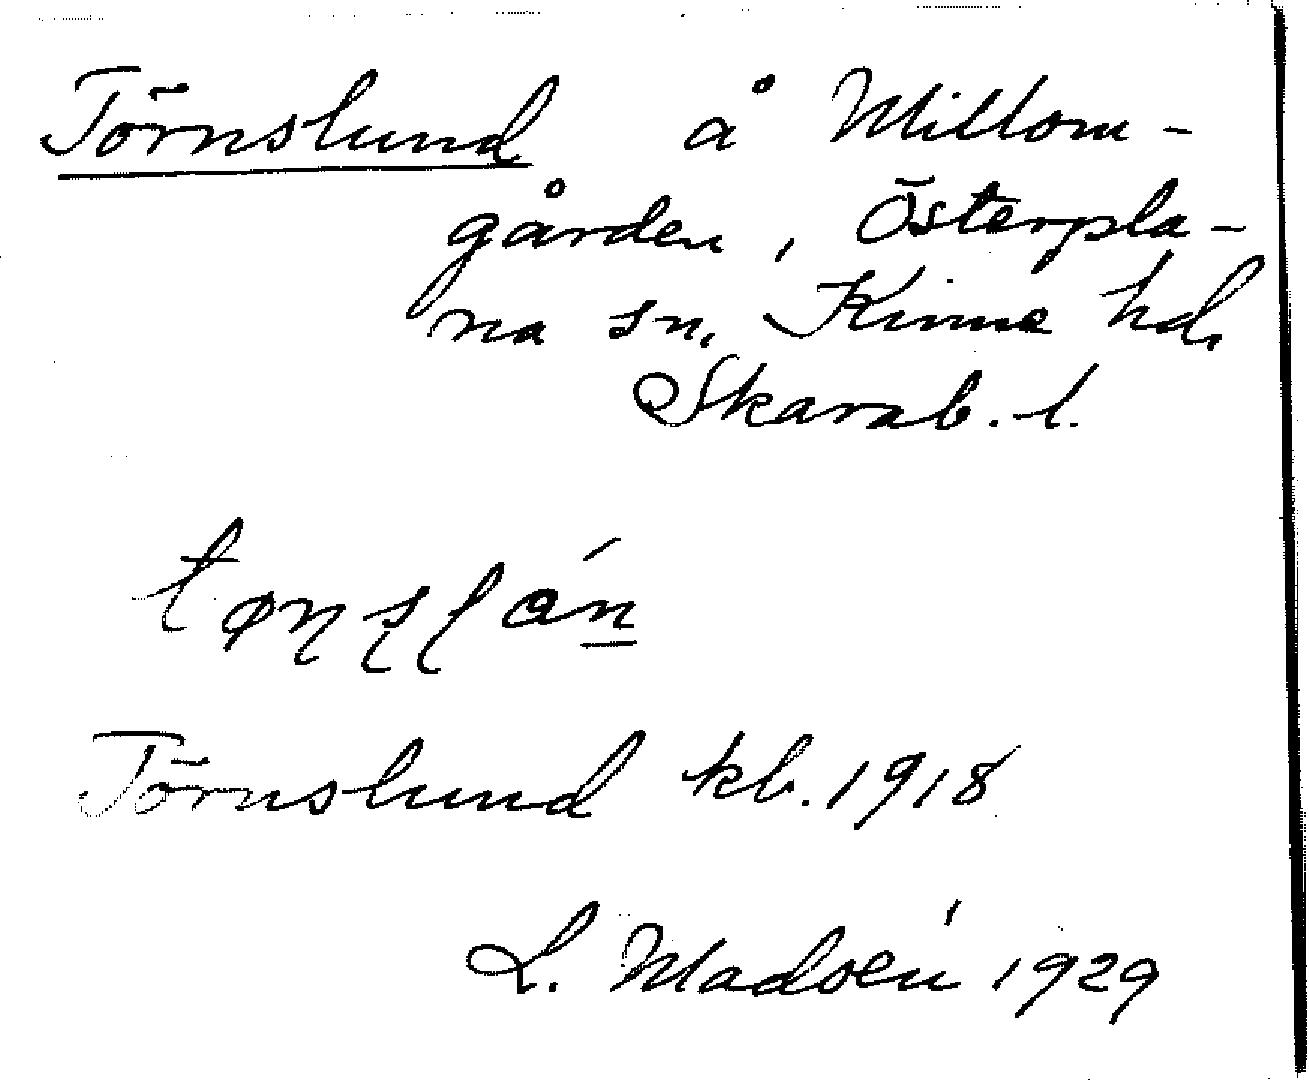 Törnslund å Millom-
gården, Österpla-
na sn, Kinne hd,
Skarab. l.
Törnslund kb. 1918
L. Madsén 1929